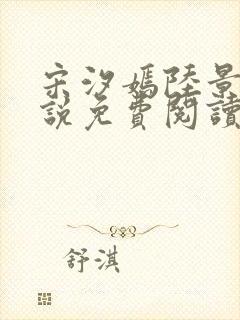 宋汐嫣陸景
說免費閱讀
舒淇